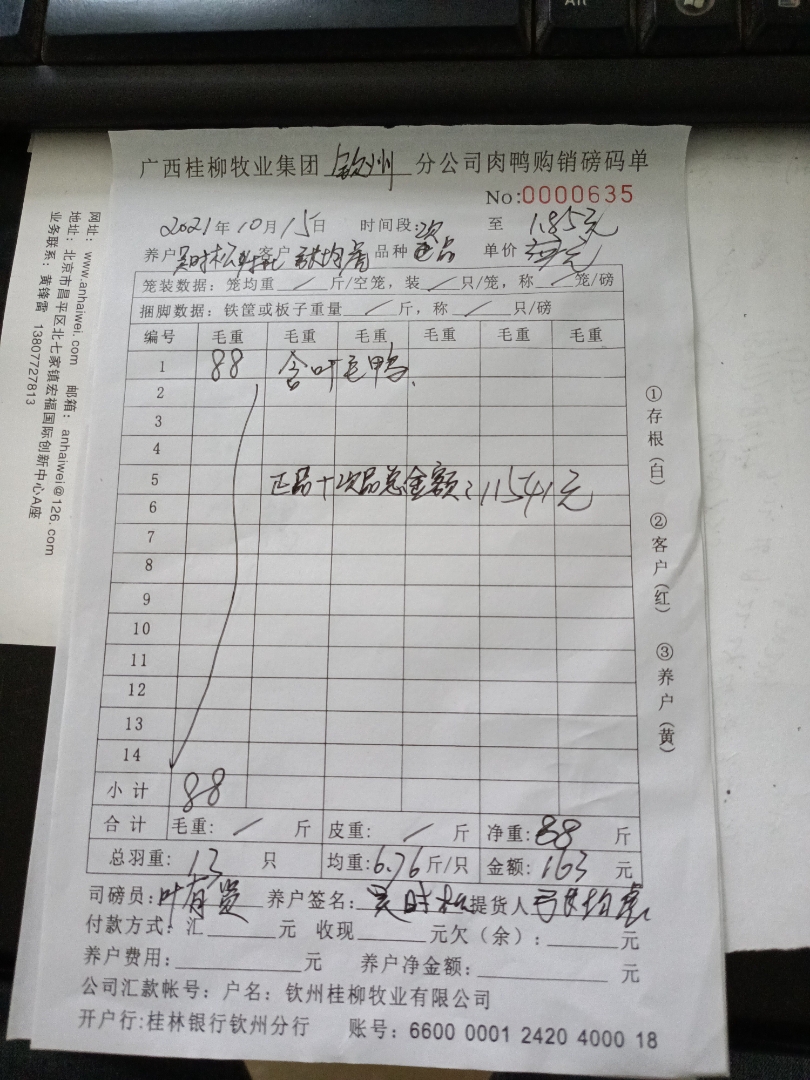 广西桂柳牧业集团 钦州 分公司肉鸭购销磅码单
No:0000635
2021年10月15日 时间段: 至 1.85元
养户 吴时松 客户 品种 单价
笼装数据：笼均重 / 斤/空笼，装 / 只/笼，称 / 笼/磅
捆脚数据：铁筐或板子重量 / 斤，称 / 只/磅
编号 毛重 毛重 毛重 毛重 毛重 毛重
1 88 含叶毛鸭
2
3
4
5 正品+次品总金额:11541元
6
7
8
9
10
11
12
13
14
小计 88
合计 毛重: / 斤 皮重: / 斤 净重:88 斤
总羽重: 13 只 均重:6.76斤/只 金额:163 元
司磅员:叶有贤 养户签名:吴时松 提货人
付款方式:汇 元 收现 元欠（余）: 元
养户费用: 元 养户净金额: 元
公司汇款帐号：户名：钦州桂柳牧业有限公司
开户行:桂林银行钦州分行 账号：6600 0001 2420 4000 18
①存根（白） ②客户（红） ③养户（黄）
网址：www.anhaiwei.com 邮箱：anhaiwei@126.com
地址：北京市昌平区北七家镇宏福国际创新中心A座
业务联系：黄锋雷 13807727813